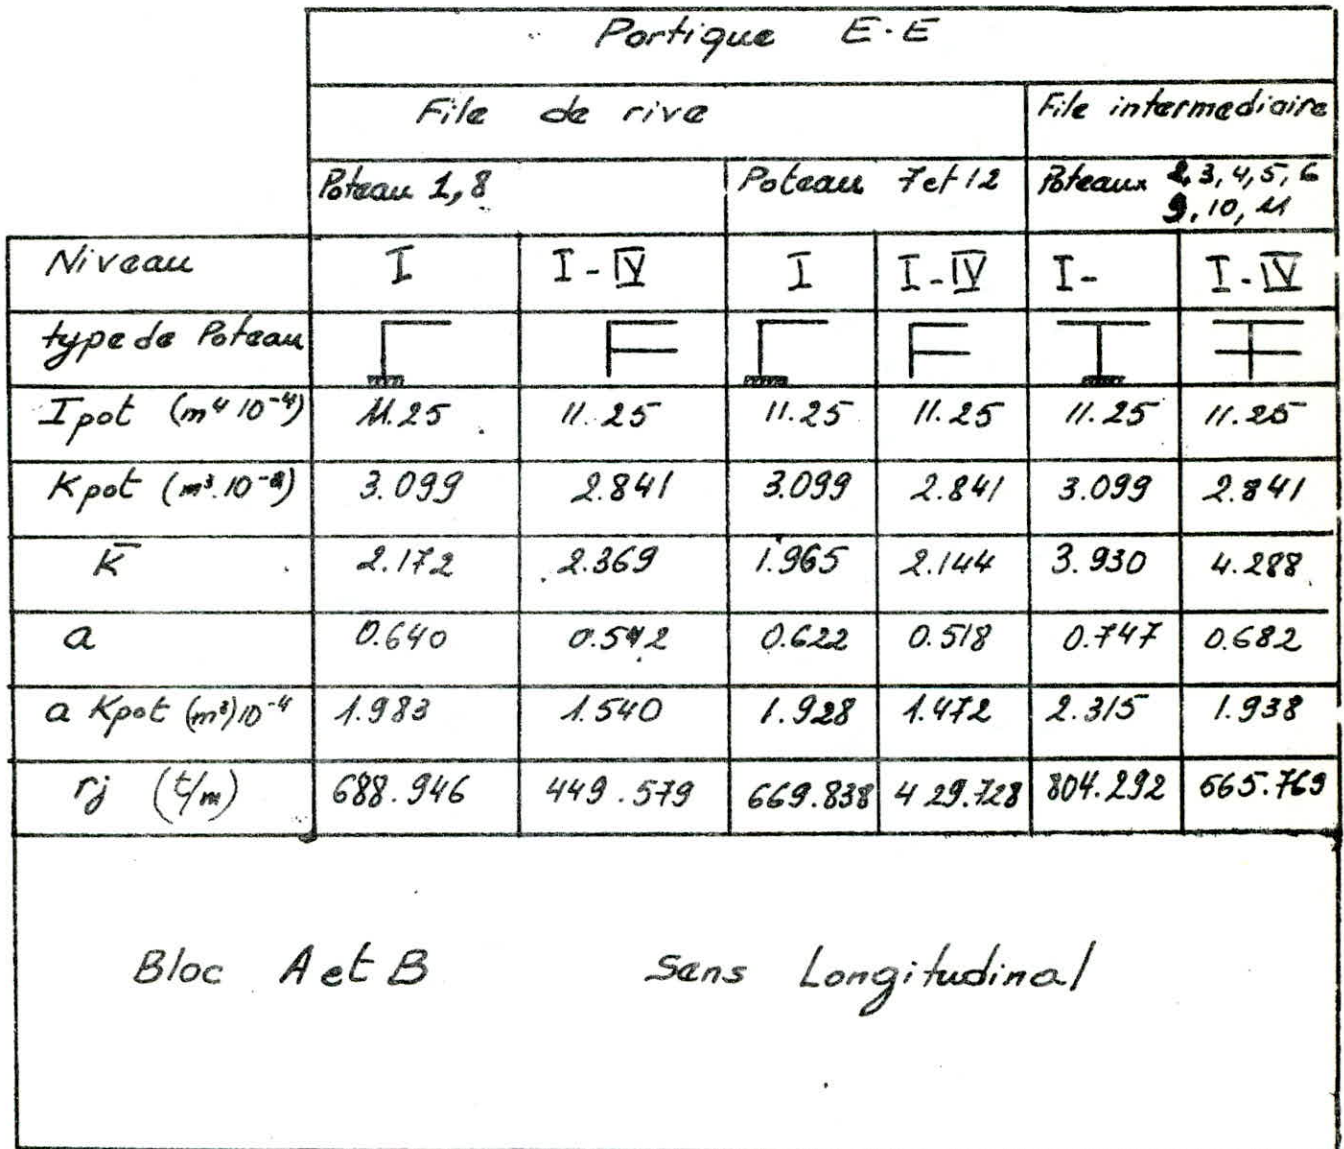 Portique E-E
File de rive File intermediaire
Poteau 1,8 Poteau 7 et 12 Poteaux 2,3,4,5,6
9,10,11
Niveau I I-IV I I-IV I- I-IV
type de Poteau
Ipot (m⁴ 10⁻⁴) 11.25 11.25 11.25 11.25 11.25 11.25
Kpot 3.099 2.841 3.099 2.841 3.099 2.841
K̅ 2.172 2.369 1.965 2.144 3.930 4.288
a 0.640 0.542 0.622 0.518 0.747 0.682
a Kpot (m³)10⁻⁴ 1.983 1.540 1.928 1.472 2.315 1.938
rj (t/m) 688.946 449.579 669.838 429.728 804.292 565.769
Bloc A et B Sens Longitudinal